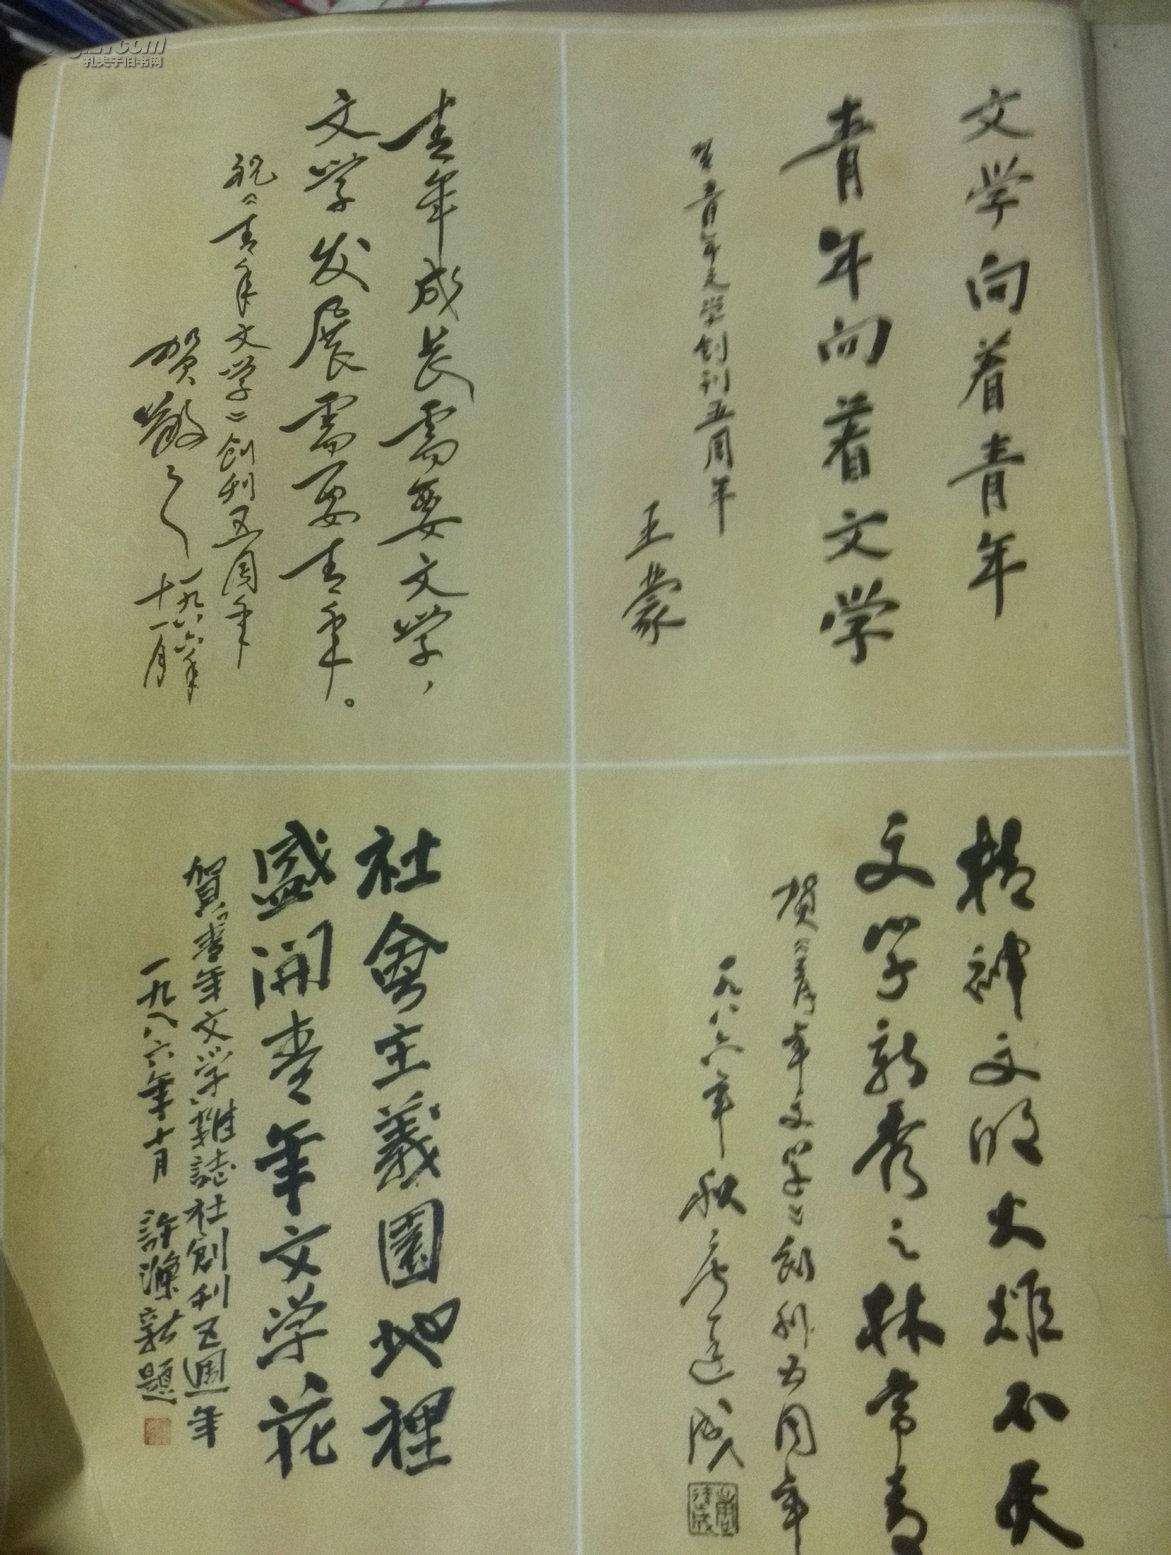 孔夫子旧书网
文学向着青年
青年向着文学
贺青年文学创刊五周年
王蒙
青年成长需要文学，
文学发展需要青年。
祝《青年文学》创刊五周年
贺敬之
一九八六年
十一月
精神文明火炬不灭
文学新秀之林常青
贺《青年文学》创刊五周年
一九八六年秋唐达成
社會主義園地裡
盛開青年文学花
賀青年文学雜誌社創刊五週年
一九八六年十月 許淶新題